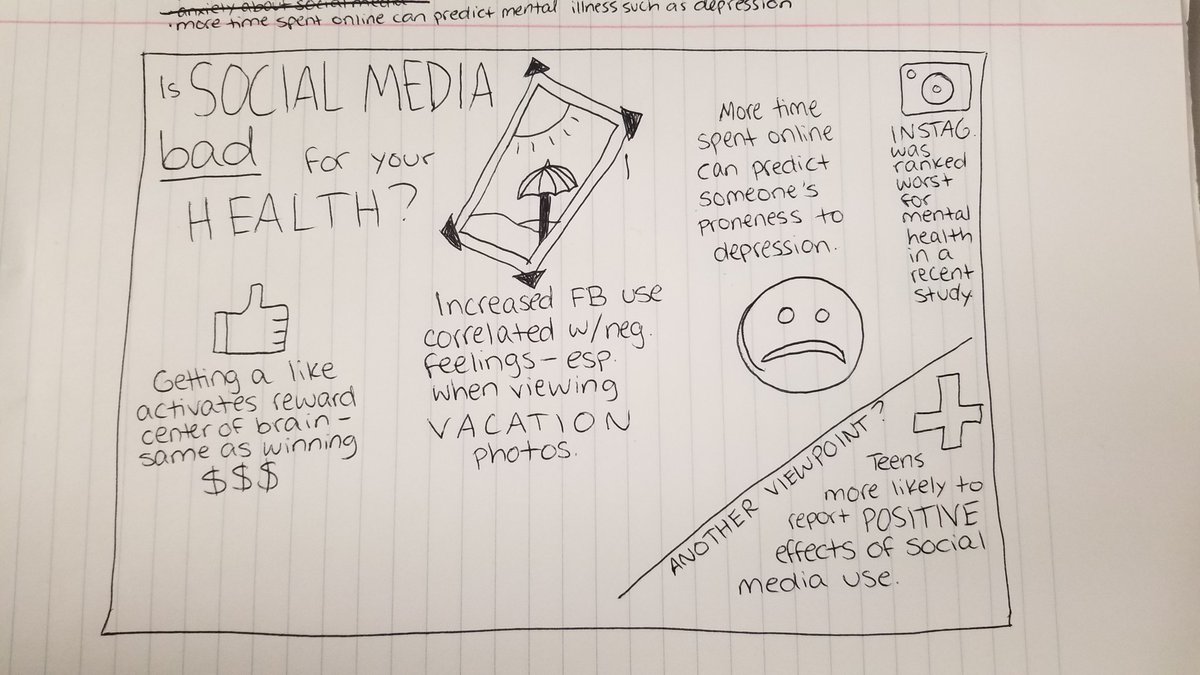 anxiety about social media
• more time spent online can predict mental illness such as depression
Is SOCIAL MEDIA
bad for your
HEALTH?
Getting a like
activates reward
center of brain –
same as winning
$$$
Increased FB use
correlated w/neg.
feelings – esp.
when viewing
VACATION
photos.
More time
spent online
can predict
someone's
proneness to
depression.
INSTAG.
was
ranked
worst
for
mental
health
in a
recent
study
ANOTHER VIEWPOINT?
Teens
more likely to
report POSITIVE
effects of social
media use.